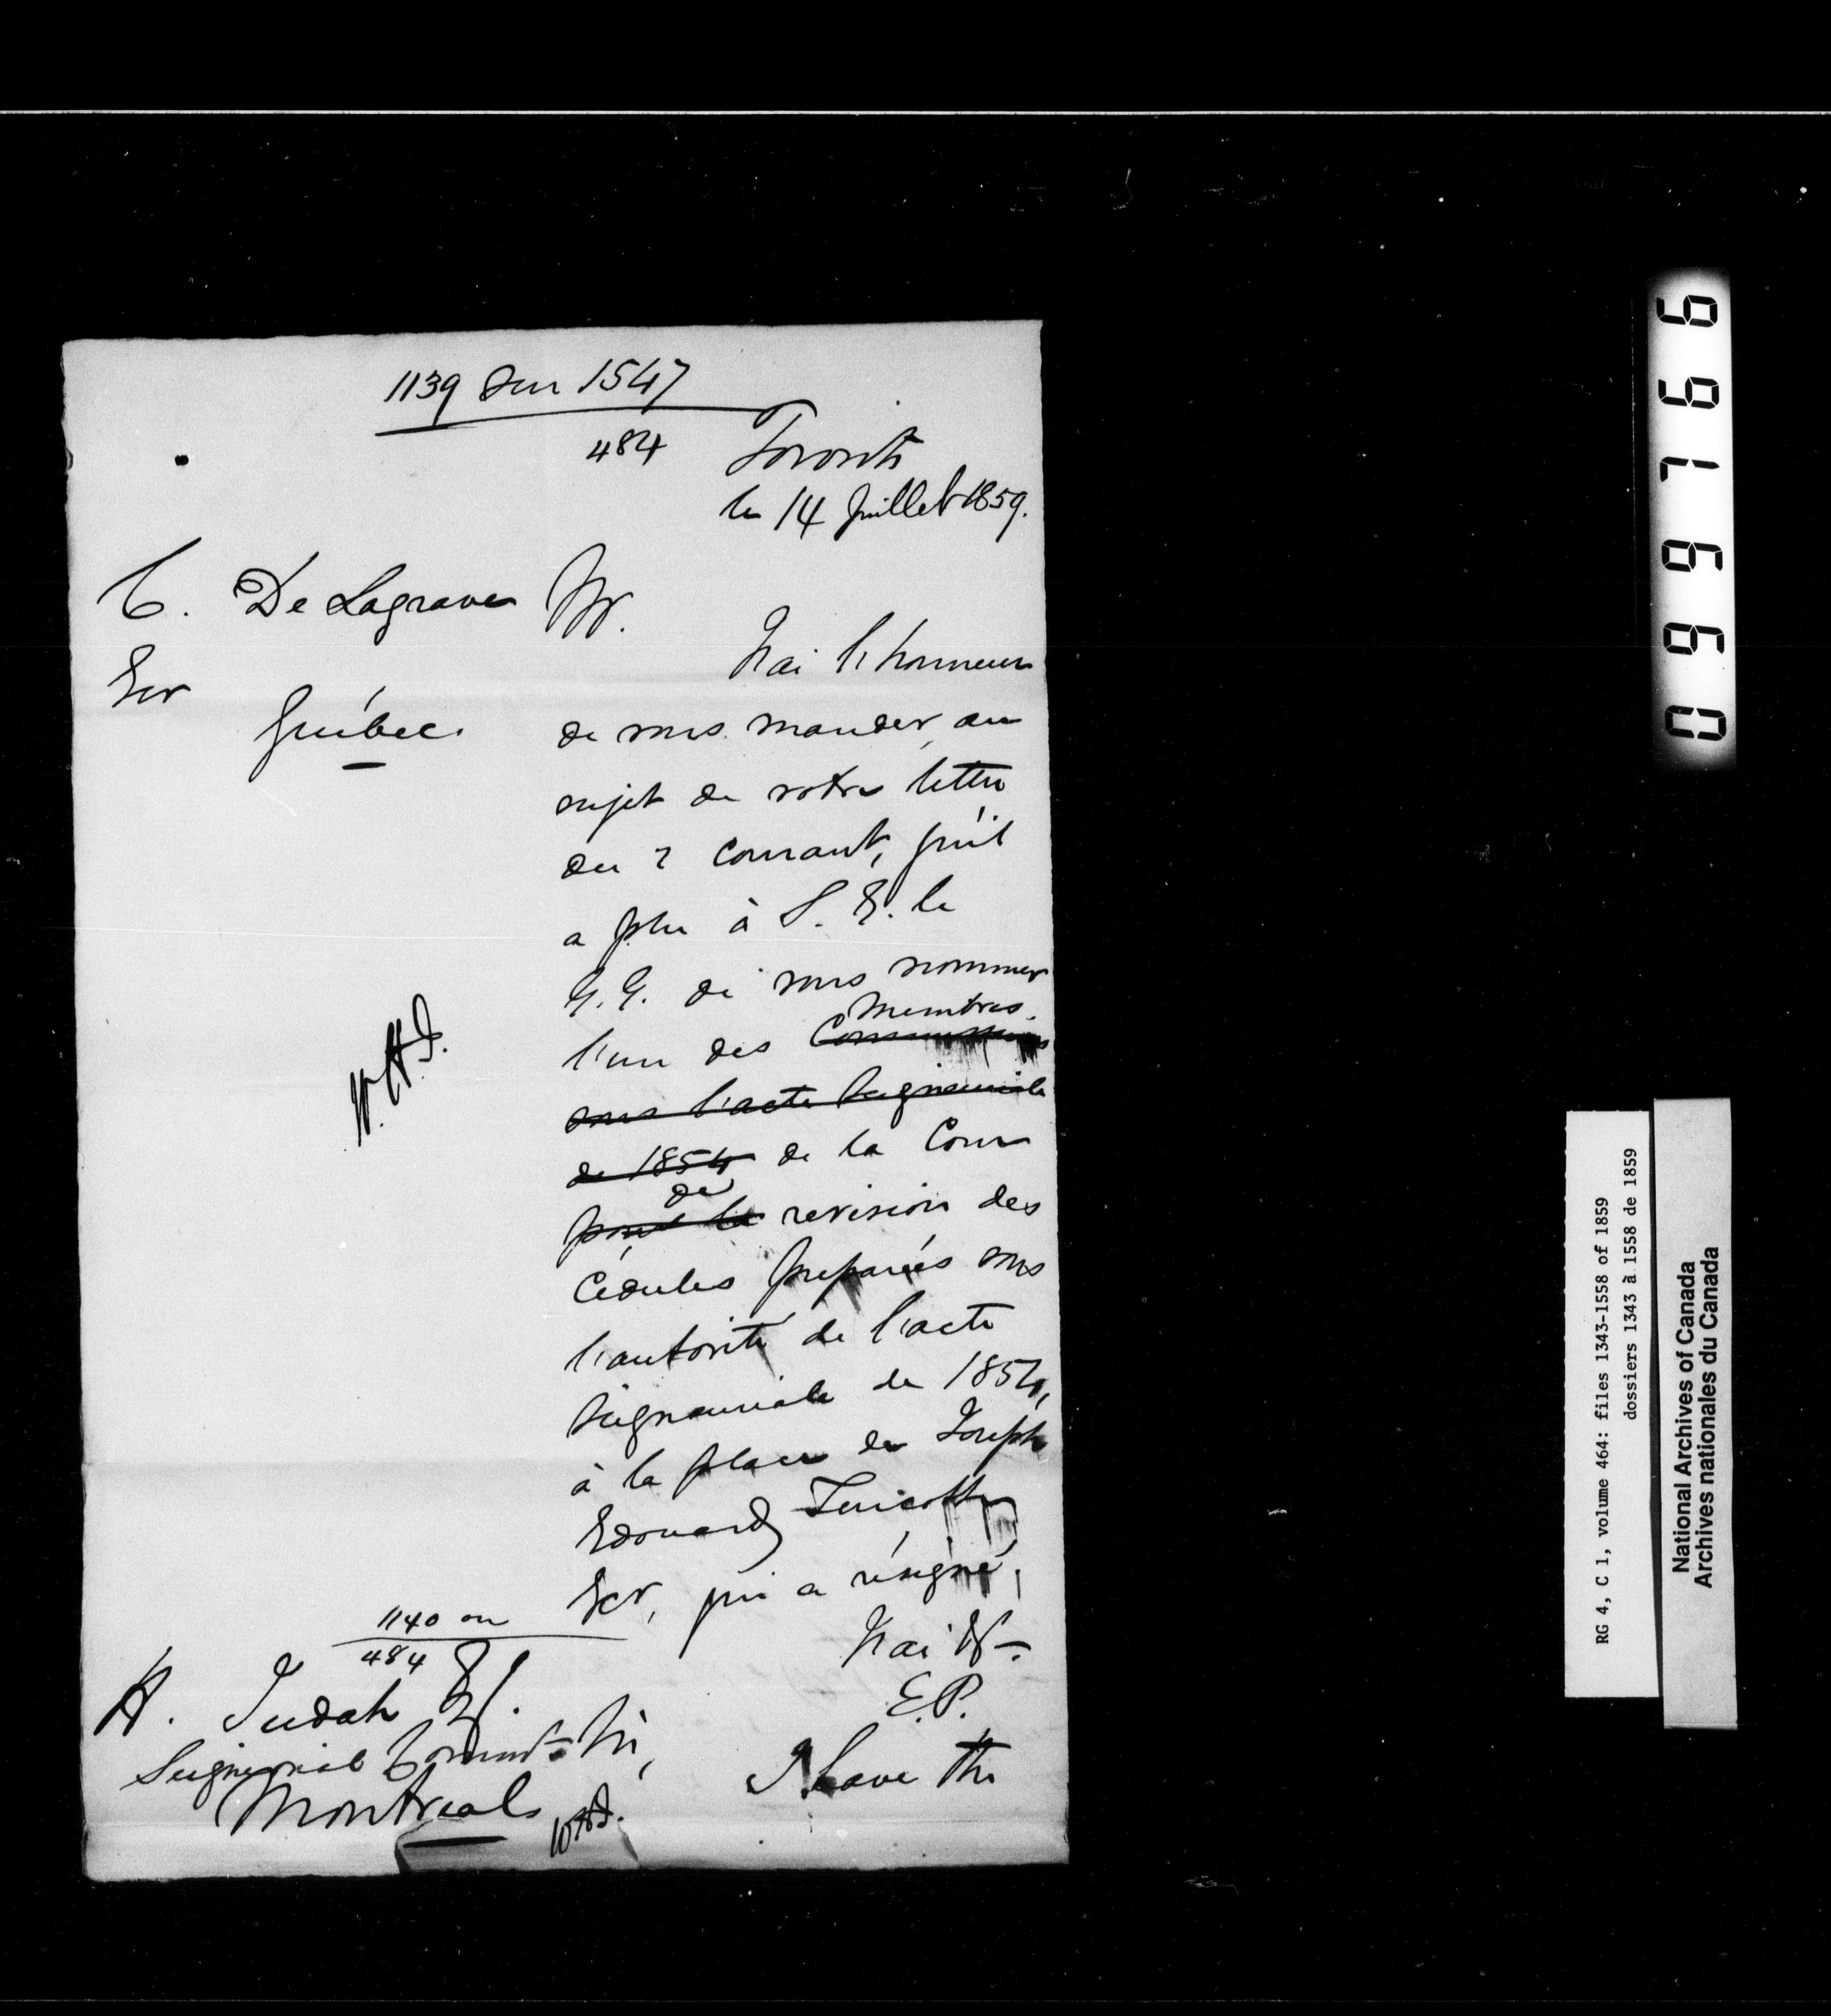 1139 sur 1547
484
Toronto
le 14 Juillet 1859.
C. De Lagrave
Ecr
Québec.
Mr.
J'ai l'honneur
de vous mander, au
sujet de votre lettre
du 2 courant, qu'il
a plu à S. E. le
G. G. de vous nommer
membres
l'un des Commissaires
sous l'acte Seigneuriale
de 1854 de la Cour
de
pour la revision des
Cédules preparées sous
l'autorité de l'acte
Seigneuriale de 1854,
à la place de Joseph
Edouard Turcotte
Ecr, qui a résigné,
J'ai &c
E.P.
W.H.J.
1140 on
484
H. Judah Esq.
Seigneurial Commr
Montreal
Sir,
I have the
W.H.J.
0997166
RG 4, C 1, volume 464: files 1343-1558 of 1859
dossiers 1343 à 1558 de 1859
National Archives of Canada
Archives nationales du Canada